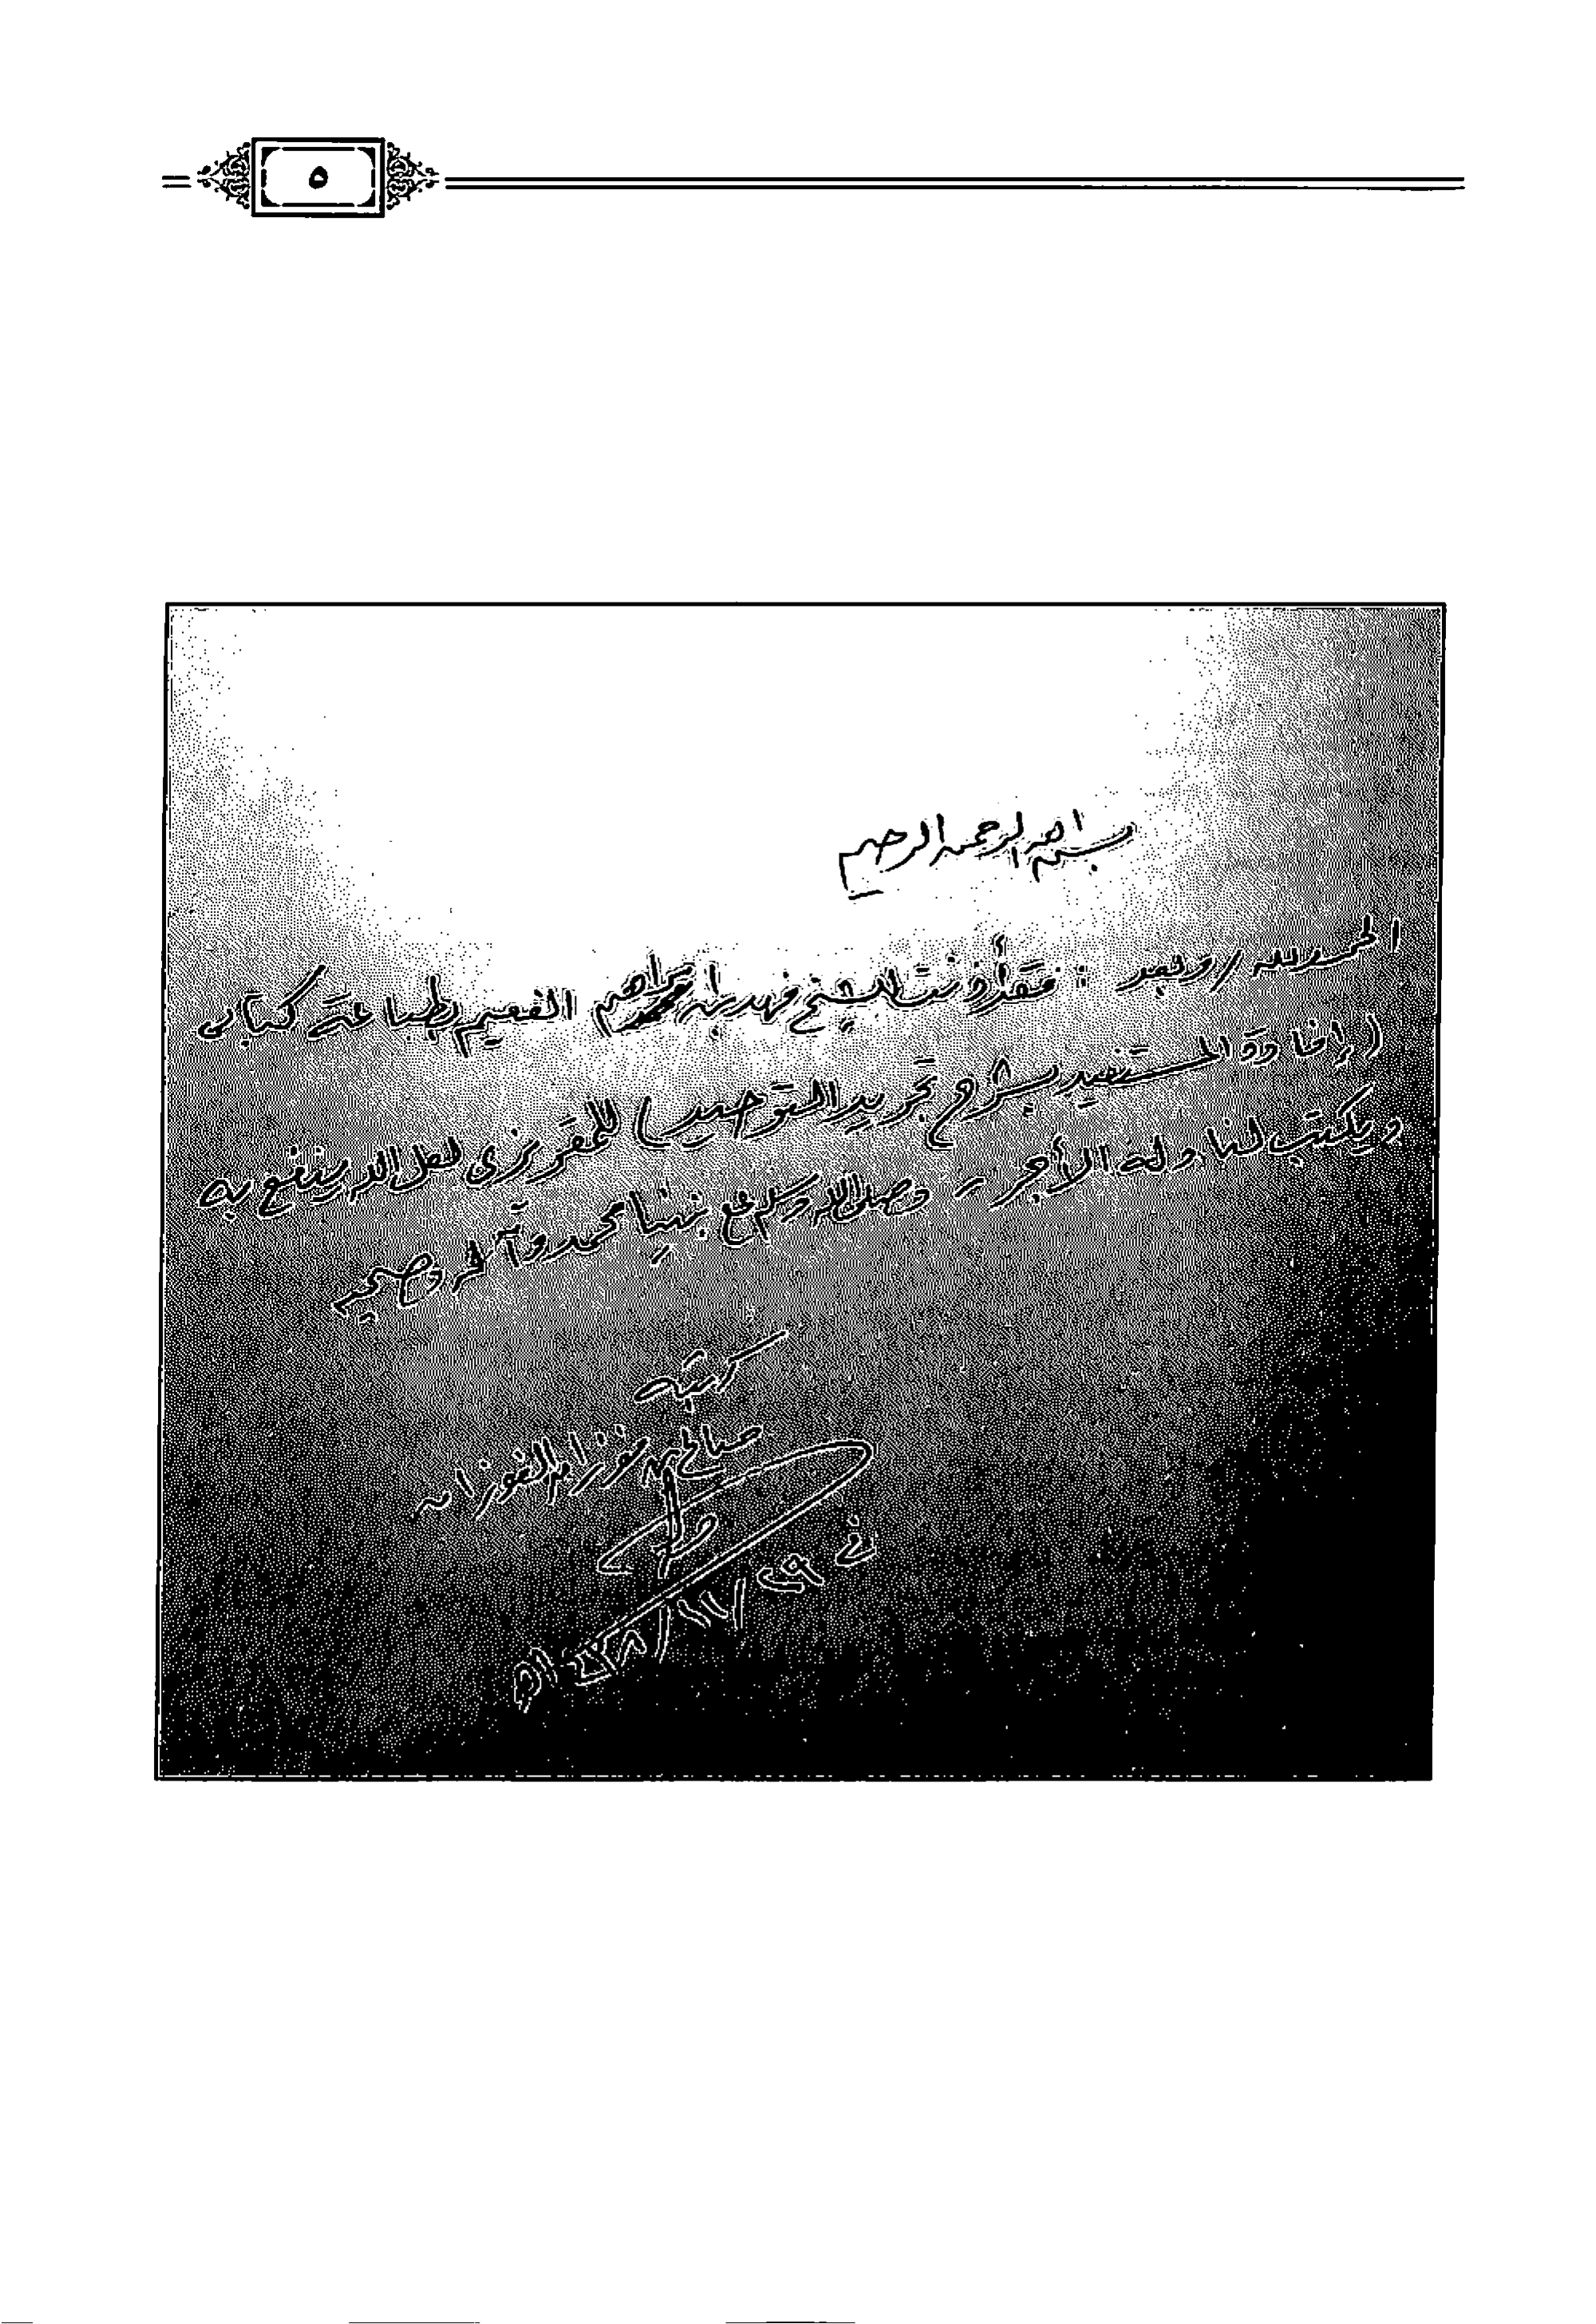 ٥
بسم الله الرحمن الرحيم
الحمد لله / وبعد : فقد أذنت للشيخ فهد بن ابراهيم الفعيم بطباعة كتابي
( إفادة المستفيد بشرح تجريد التوحيد ) للمقريزي لعل الله ينفع به
ويكتب لنا وله الأجر .. وصلى الله وسلم على نبينا محمد وآله وصحبه
كتبه
صالح بن فوزان الفوزان
في ٢٩ / ١١ / ١٤٣٨ هـ